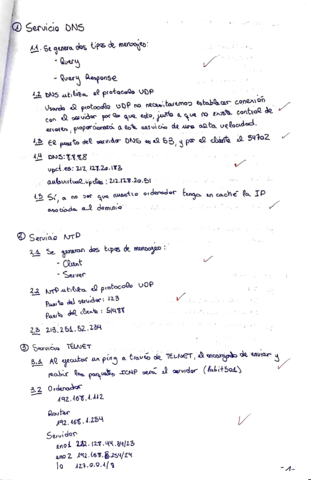 ① Servicio DNS
1.1. Se genera dos tipos de mensajes:
- Query
- Query Response
1.2 DNS utiliza el protocolo UDP
Usando el protocolo UDP no necesitaremos establecer conexión
con el servidor por lo que esto, junto a que no exista control de
errores, proporcionará a este servicio de una alta velocidad.
1.3 El puerto del servidor DNS es el 53, y por el cliente el 54702
1.4 DNS: 8.8.8.8
upct.es: 212.128.20.183
aulavirtual.upct.es: 212.128.20.
1.5 Sí, a no ser que nuestro ordenador tenga en caché la IP
asociada al dominio
② Servicio NTP
2.1 Se generan dos tipos de mensajes:
- Client
- Server
2.2 NTP utiliza el protocolo UDP
Puerto del servidor: 123
Puerto del cliente: 51488
2.3 213.251.52.234
③ Servicio TELNET
3.1 Al ejecutar un ping a través de TELNET, el encargado de enviar y
recibir los paquetes ICMP será el servidor
3.2 Ordenador
192.168.1.112
Router
192.168.1.254
Servidor
eno1 212.128.44.
eno2 192.168.8.254/24
lo 127.0.0.1/8
-1-